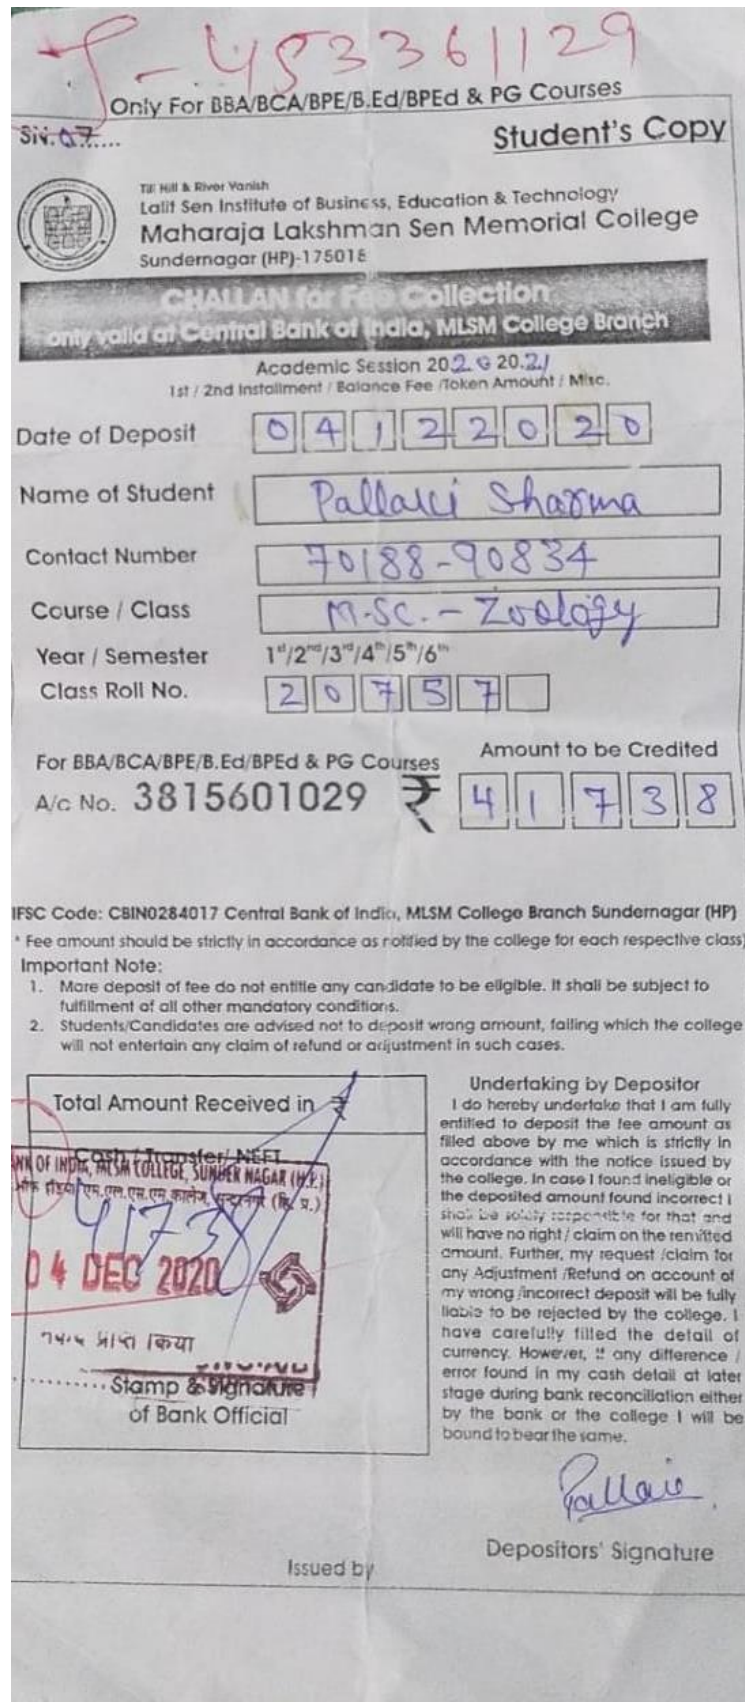 J-453361129
Only For BBA/BCA/BPE/B.Ed/BPEd & PG Courses
07......
Student's Copy
Till Hill & River Vanish
Lalit Sen Institute of Business, Education & Technology
Maharaja Lakshman Sen Memorial College
Sundernagar (HP)-175018
CHALLAN for Fee Collection
only valid at Central Bank of India, MLSM College Branch
Academic Session 2020 2021
1st / 2nd Installment / Balance Fee /Token Amount / Misc.
Date of Deposit 04122020
Name of Student Pallavi Sharma
Contact Number 70188-90834
Course / Class M.Sc. - Zoology
Year / Semester 1st/2nd/3rd/4th/5th/6th
Class Roll No. 20757
For BBA/BCA/BPE/B.Ed/BPEd & PG Courses Amount to be Credited
A/c No. 3815601029 ₹ 41738
IFSC Code: CBIN0284017 Central Bank of India, MLSM College Branch Sundernagar (HP)
* Fee amount should be strictly in accordance as notified by the college for each respective class)
Important Note:
1. More deposit of fee do not entitle any candidate to be eligible. It shall be subject to
fulfillment of all other mandatory conditions.
2. Students/Candidates are advised not to deposit wrong amount, failing which the college
will not entertain any claim of refund or adjustment in such cases.
Total Amount Received in ₹
Cash / Transfer/ NEFT
NK OF INDIA, MLSM COLLEGE, SUNDER NAGAR (H.P.)
ऑफ इंडिया एम.एल.एस.एम. कालेज, सुन्दरनगर (हि. प्र.)
41738
04 DEC 2020
नकद प्राप्त किया
Stamp & Signature
of Bank Official
Undertaking by Depositor
I do hereby undertake that I am fully
entitled to deposit the fee amount as
filled above by me which is strictly in
accordance with the notice issued by
the college. In case I found ineligible or
the deposited amount found incorrect I
shall be solely responsible for that and
will have no right / claim on the remitted
amount. Further, my request /claim for
any Adjustment /Refund on account of
my wrong /incorrect deposit will be fully
liable to be rejected by the college. I
have carefully filled the detail of
currency. However, if any difference /
error found in my cash detail at later
stage during bank reconciliation either
by the bank or the college I will be
bound to bear the same.
Pallavi
Depositors' Signature
Issued by